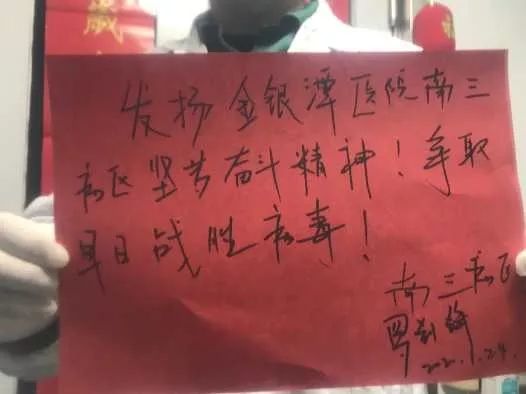 岁
发扬金银潭医院南三
病区坚苦奋斗精神！争取
早日战胜病毒！
南三病区
2020.1.24.